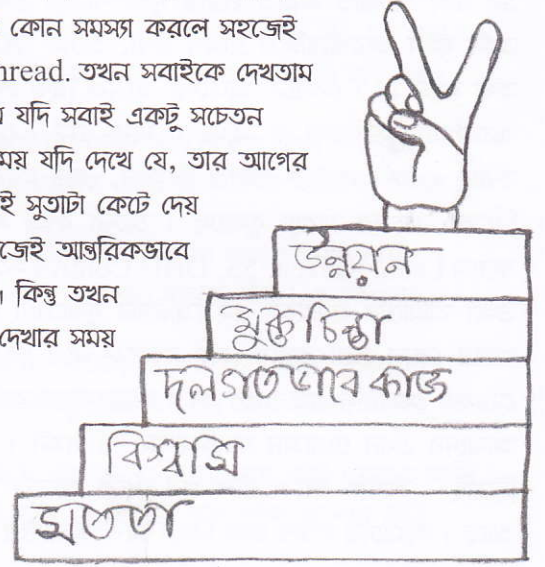 কোন সমস্যা করলে সহজেই
hread. তখন সবাইকে দেখতাম
যদি সবাই একটু সচেতন
ময় যদি দেখে যে, তার আগের
ই সুতাটা কেটে দেয়
জেই আন্তরিকভাবে
। কিন্তু তখন
দেখার সময়
উন্নয়ন
মুক্ত চিন্তা
দলগতভাবে কাজ
বিশ্বাস
সততা